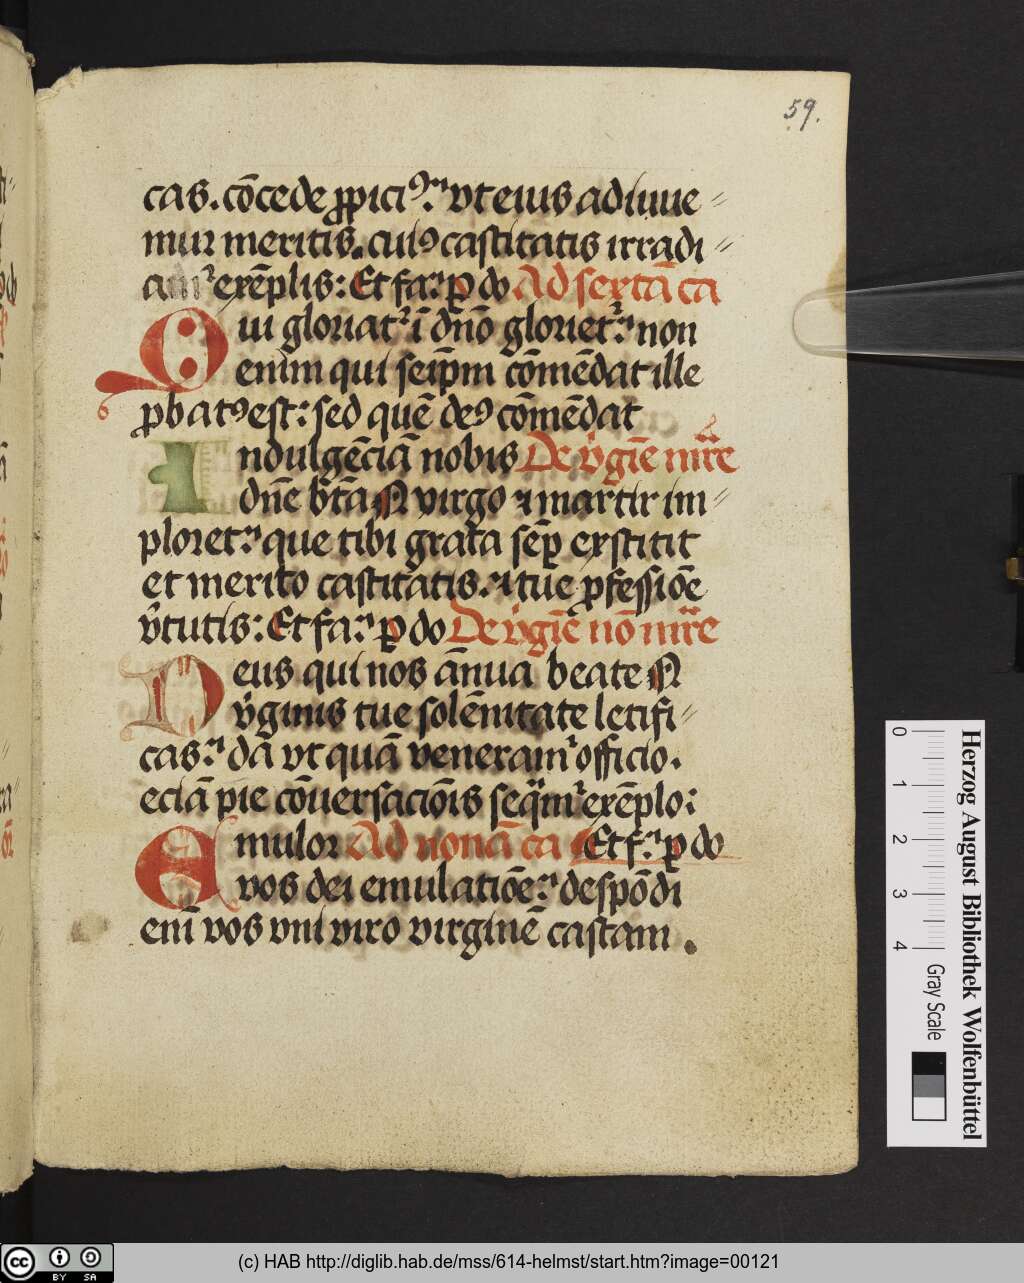 59.
cas. cōcede ꝓpiciꝰ: vt eius adiuue⸗
mur meritis. cuiꝰ castitatis irradi⸗
amᷣ exēplis: Et fa: ꝑ do Ad sextā ca
Qui gloriatᷣ ī dn̄o glorietᷣ: non
enim qui seip̄m cōmēdat ille
ꝓbatꝰ est: sed quē deꝰ cōmēdat
Indulgēciā nobis De v̓gīe mr̄e
dn̄e b̄tā N virgo ⁊ martir im⸗
ploret: que tibi grata semꝑ exstitit
et merito castitatis. ⁊ tue ꝓfessiōe
v̓tutis: Et fa: ꝑ do De v̓gīe nō mr̄e
Deus qui nos ānua beate N
v̓ginis tue solēnitate letifi⸗
cas: dā vt quā veneramᷣ officio.
eciā pie cōuersaciōis seqᷓmᷣ exēplo:
Emulor Ad nonā ca Et f: ꝑ do
vos dei emulatiōe: despōdi
enī vos vni viro virginē castam .
Herzog August Bibliothek Wolfenbüttel
0 1 2 3 4 Gray Scale
cc BY SA
(c) HAB http://diglib.hab.de/mss/614-helmst/start.htm?image=00121